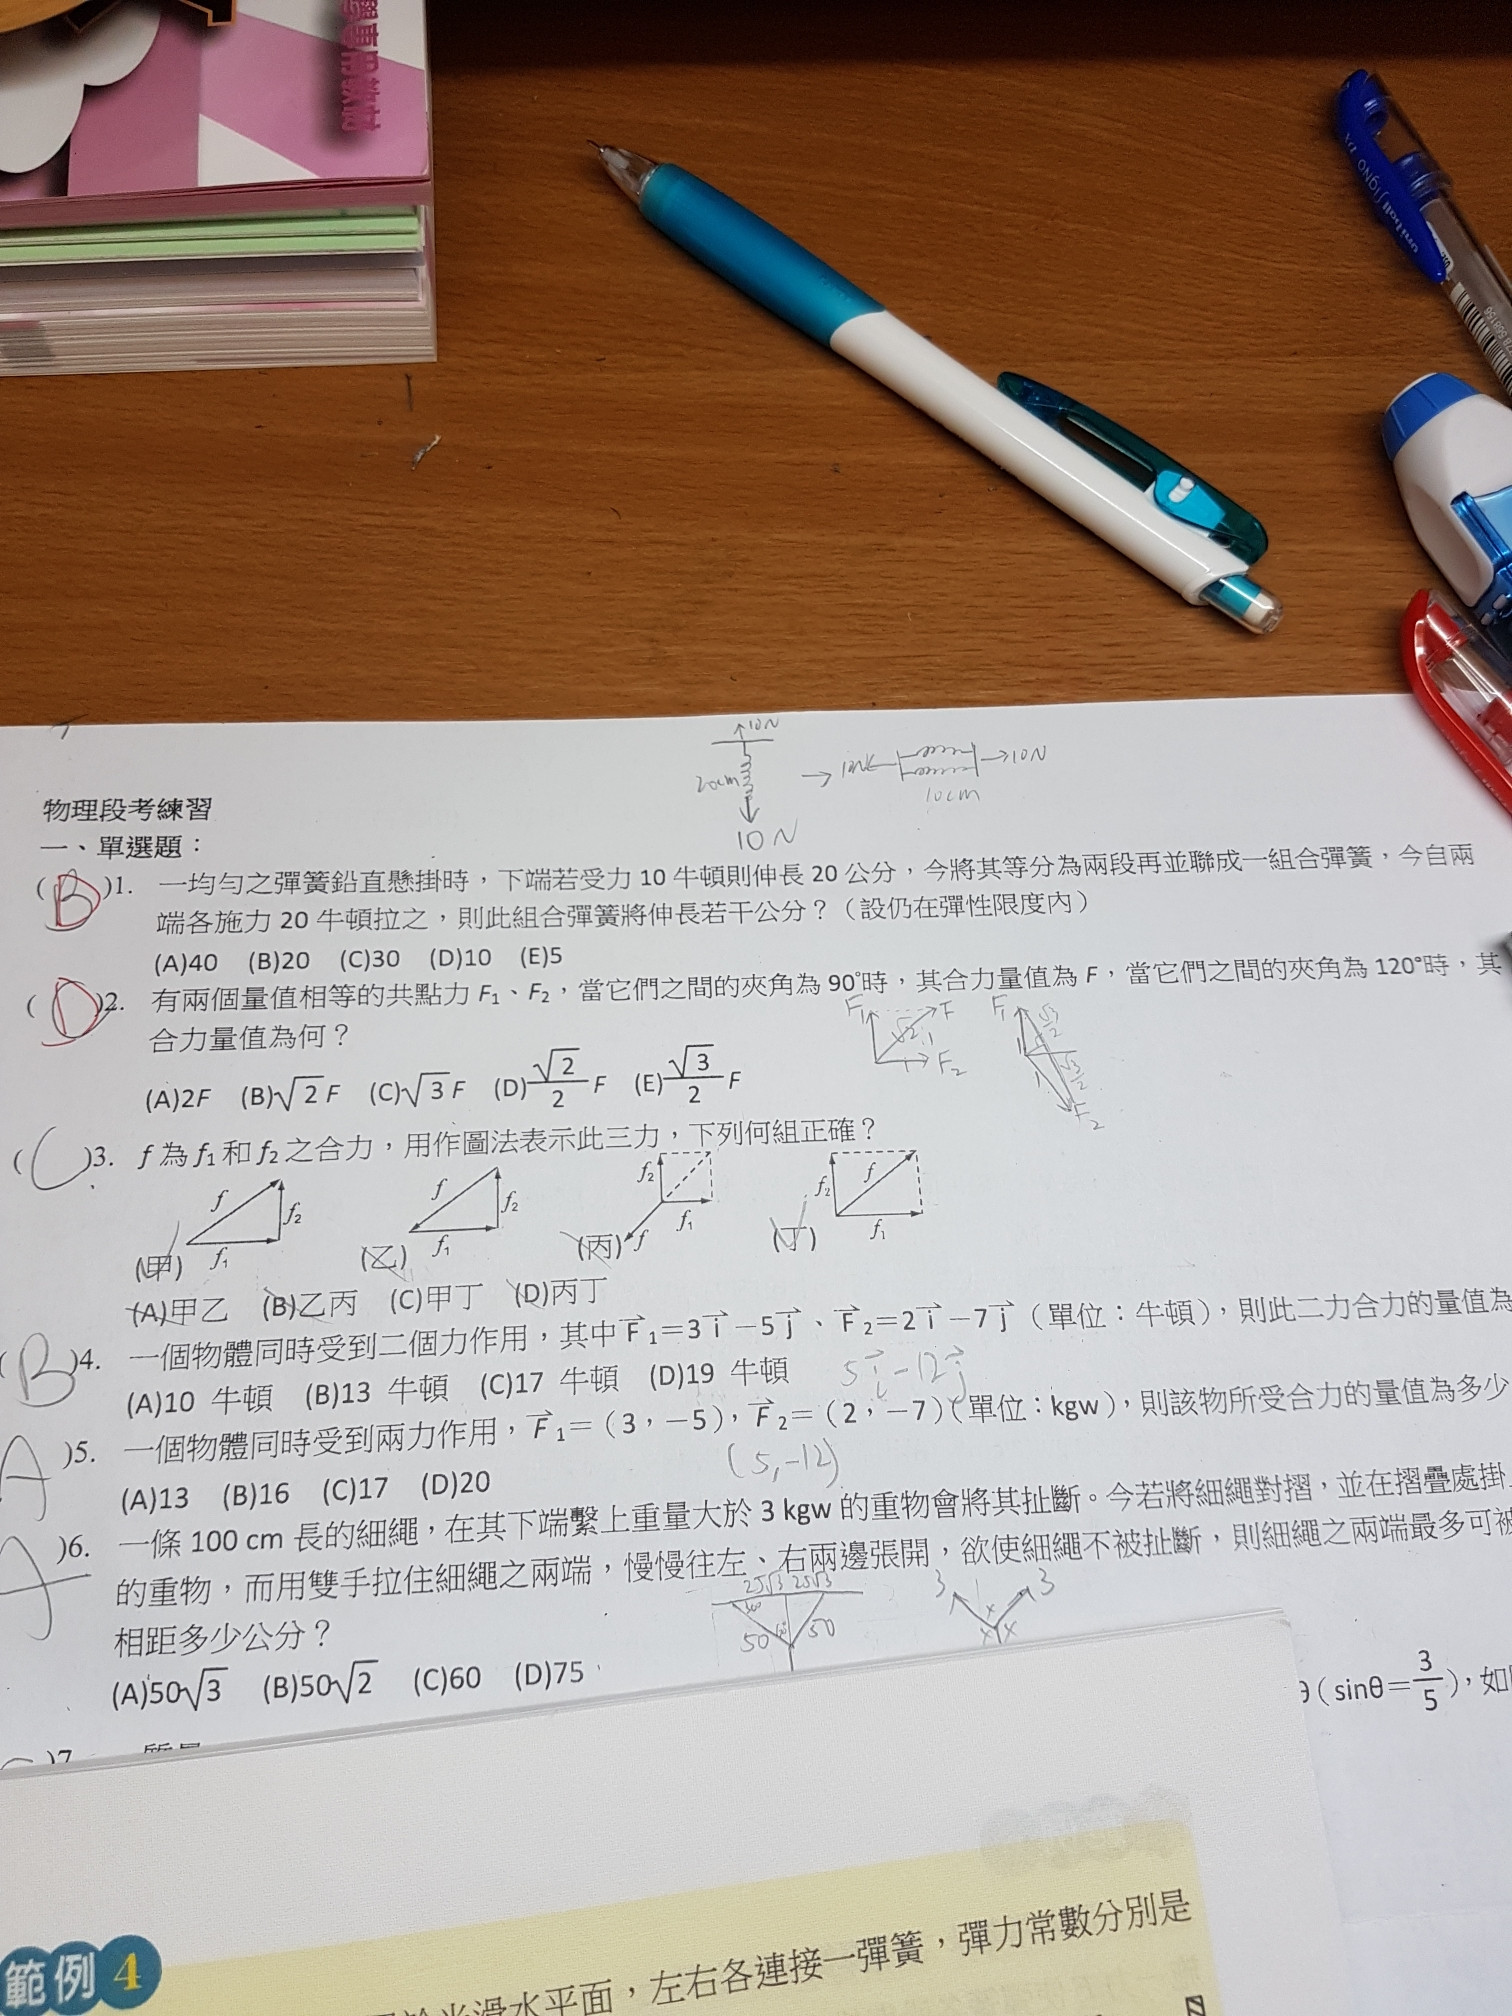 學專用教材
uni-ball Signo DX
↑10N
20cm
10N
10N
10N
10cm
物理段考練習
一、單選題：
(B)1. 一均勻之彈簧鉛直懸掛時，下端若受力 10 牛頓則伸長 20 公分，今將其等分為兩段再並聯成一組合彈簧，今自兩
端各施力 20 牛頓拉之，則此組合彈簧將伸長若干公分？（設仍在彈性限度內）
(A)40 (B)20 (C)30 (D)10 (E)5
(D)2. 有兩個量值相等的共點力 F₁、F₂，當它們之間的夾角為 90°時，其合力量值為 F，當它們之間的夾角為 120°時，其
合力量值為何？
F₁ F √2 1 1 F₂
F₁ √3/2 √3/2 1 1 F₂
(A)2F (B)√2 F (C)√3 F (D)√2/2 F (E)√3/2 F
(C)3. f 為 f₁ 和 f₂ 之合力，用作圖法表示此三力，下列何組正確？
f f₂ f₁ (甲)
f f₂ f₁ (乙)
f₂ f₁ f (丙)
f₂ f f₁ (丁)
(A)甲乙 (B)乙丙 (C)甲丁 (D)丙丁
(B)4. 一個物體同時受到二個力作用，其中 F⃗₁＝3 i⃗ －5 j⃗ 、F⃗₂＝2 i⃗ －7 j⃗（單位：牛頓），則此二力合力的量值為
(A)10 牛頓 (B)13 牛頓 (C)17 牛頓 (D)19 牛頓
5i⃗-12j⃗
A )5. 一個物體同時受到兩力作用，F⃗₁＝（3，－5），F⃗₂＝（2，－7）（單位：kgw），則該物所受合力的量值為多少
(A)13 (B)16 (C)17 (D)20
(5,-12)
A )6. 一條 100 cm 長的細繩，在其下端繫上重量大於 3 kgw 的重物會將其扯斷。今若將細繩對摺，並在摺疊處掛
的重物，而用雙手拉住細繩之兩端，慢慢往左、右兩邊張開，欲使細繩不被扯斷，則細繩之兩端最多可被
相距多少公分？
25√3 25√3
50 50
3 3
(A)50√3 (B)50√2 (C)60 (D)75
θ（sinθ＝3/5），如
)7.
範例 4
光滑水平面，左右各連接一彈簧，彈力常數分別是